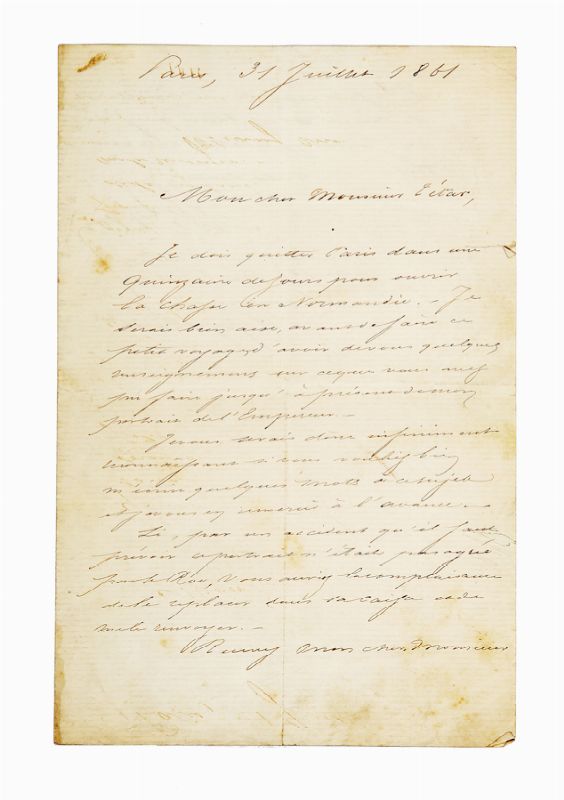 Paris, 31 Juillet 1861
Mon cher Monsieur
Je dois quitter Paris dans une
Quinzaine de jours pour ouvrir
la chasse en Normandie. - Je
serais bien aise, avant de faire ce
petit voyage d'avoir de vous quelques
renseignemens sur ce que vous avez
pu faire jusqu'à présent de mon
portrait de l'Empereur. -
Je vous serais donc infiniment
reconnaissant si vous vouliez bien
m'écrire quelques mots à ce sujet
et je vous en remercie à l'avance. -
Si, par un accident qu'il faut
prévoir ce portrait n'était pas agréé
par le Roi, vous auriez la complaisance
de le replacer dans sa caisse et de
me le renvoyer. -
Recevez mon cher Monsieur